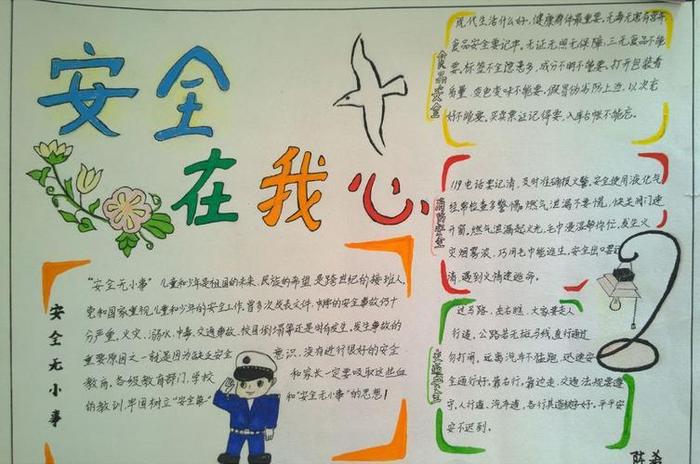 安全
在我心
食品安全
现代生活什么好,健康身体最重要,无毒无害有营养
食品安全要记牢,无证无照无保障,三无食品不能
要,标签不全隐患多,成分不明不能要,打开包装看
质量,变色变味不能要,假冒伪劣防上当,以次充
好不能要,买卖票证记得要,入库台帐不能忘。
消防安全
119电话要记清,及时准确报火警,安全使用液化气
经常检查多警惕,燃气泄漏不要慌,快关阀门速
开窗,燃气泄漏起火光,毛中浸湿帮你忙,发生火
灾烟雾浓,巧用毛巾能逃生,安全出口要
清,遇到火情速逃命。
交通安全
过马路,左右瞧,大家要走人
行道,公路若无斑马线,直行通过
勿打闹,远离汽车不猛跑,迅速安
全通行好,靠右行,靠边走,交通法规要遵
守,人行道、汽车道,各行其道秩序好,平平安
安不迟到。
安全无小事
“安全无小事”儿童和少年是祖国的未来、民族的希望,是跨世纪的接班人,
党和国家重视儿童和少年的安全工作,曾多次发表文件,
分严重,火灾、溺水、中毒、交通事故、校园倒塌等还是时有发生,发生事故的
重要原因之一就是因为缺乏安全意识,没有进行很好的安全
教育,各级教育部门、学校和家长一定要吸取这些血
的教训,牢固树立“安全第一”和“安全无小事”的思想!
陈希